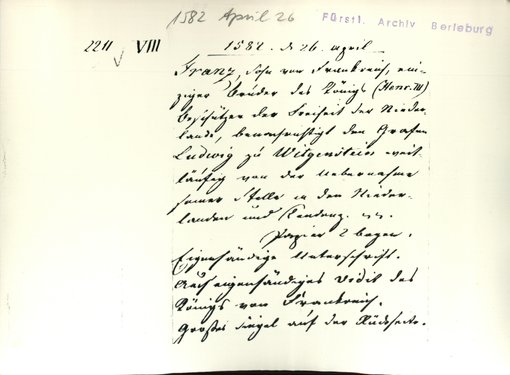 1582 April 26
Fürstl. Archiv Berleburg
2211 VIII
1582. d. 26. april
Franz, Sohn von Frankreich, ein-
ziger Bruder des Königs (Henr. III)
beschützer der Freiheit der Nieder-
lande, benachrichtigt den Grafen
Ludwig zu Witgenstein weit-
läufig von der Uebernahme
seiner Stelle in den Nieder-
landen und
Papier 2 bogen.
Eigenhändige Unterschrift.
Auch eigenhändiges des
Königs von Frankreich.
Großes Siegel auf der Rückseite.